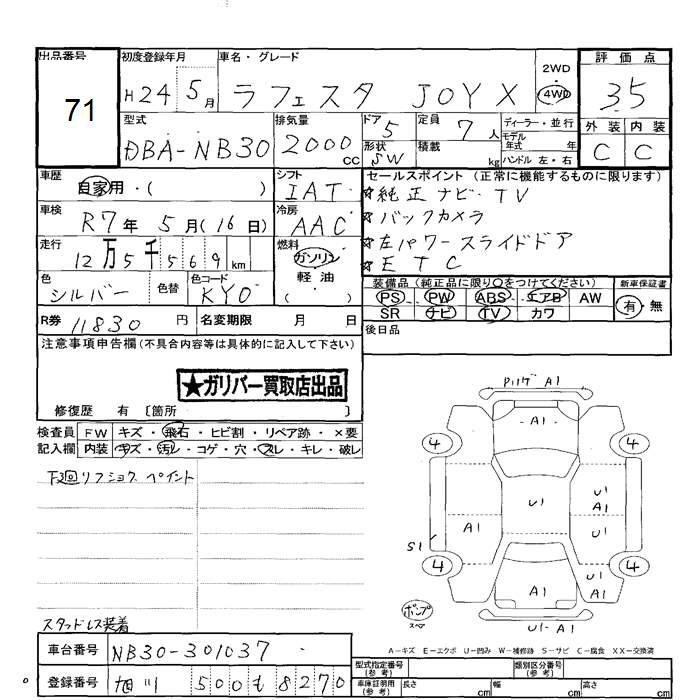 出品番号
71
初度登録年月
H24 5月
車名・グレード
ラフェスタ JOY X
2WD
4WD
評価点
3.5
外装 内装
C C
型式
DBA-NB30
排気量
2000
cc
ドア
5
形状
SW
定員
7人
積載
kg
ディーラー・並行
モデル年式 年
ハンドル 左・右
車歴
自家用・( )
シフト
IAT
車検
R7年 5月(16日)
冷房
AAC
走行
12万5千569km
燃料
ガソリン
軽油
( )
色
シルバー
色替
色コード
KY0
R券 11830 円
名変期限 月 日
セールスポイント(正常に機能するものに限ります)
☆純正ナビ・TV
☆バックカメラ
☆左パワースライドドア
☆ETC
装備品(純正品に限り○をつけてください)
PS PW ABS エアB AW
SR ナビ TV カワ
新車保証書
有・無
後日品
注意事項申告欄(不具合内容等は具体的に記入して下さい)
★ガリバー買取店出品
修復歴 有 〔箇所 〕
検査員記入欄
FW キズ・飛石・ヒビ割・リペア跡・×要
内装 キズ・汚レ・コゲ・穴・スレ・キレ・破レ
下廻リフショク ペイント
スタッドレス装着
A1
A1
4 4
U1
U1
A1
A1
U1
S1
4 4
A1
U1
A1
U1-A1
A-キズ E-エクボ U-凹み W-補修跡 S-サビ C-腐食 XX-交換済
車台番号 NB30-301037
登録番号 旭川 500 も 8270
型式指定番号(参考)
類別区分番号(参考)
車庫証明用(参考) 長さ cm 幅 cm 高さ cm